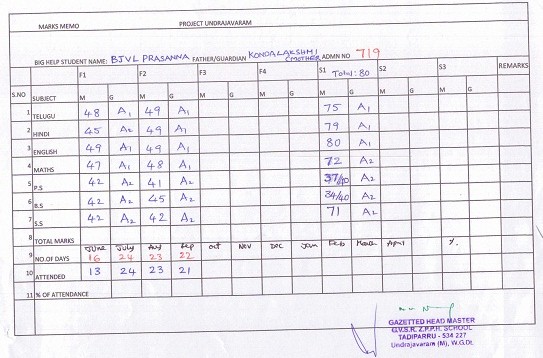 MARKS MEMO PROJECT UNDRAJAVARAM
BIG HELP STUDENT NAME: BJVL PRASANNA FATHER/GUARDIAN KONDALAKSHMI (MOTHER) ADMN NO 719
S.NO SUBJECT F1 F2 F3 F4 S1 Total: 80 S2 S3 REMARKS
M G M G M G M G M G M G M G
1 TELUGU 48 A1 49 A1 75 A1
2 HINDI 45 A2 49 A1 79 A1
3 ENGLISH 49 A1 49 A1 80 A1
4 MATHS 47 A1 48 A1 72 A2
5 P.S 42 A2 41 A2 37/40 A2
6 B.S 42 A2 45 A2 34/40 A2
7 S.S 42 A2 42 A2 71 A2
8 TOTAL MARKS June July Aug Sep oct Nov Dec Jan Feb March April %
9 NO.OF DAYS 16 24 23 22
10 ATTENDED 13 24 23 21
11 % OF ATTENDANCE
GAZETTED HEAD MASTER
G.V.S.R. Z.P.P.H. SCHOOL
TADIPARRU - 534 227
Undrajavaram (M), W.G.Dt.